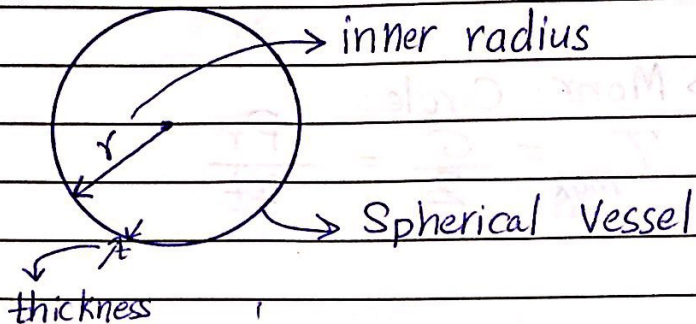 inner radius
r
Spherical Vessel
t
thickness